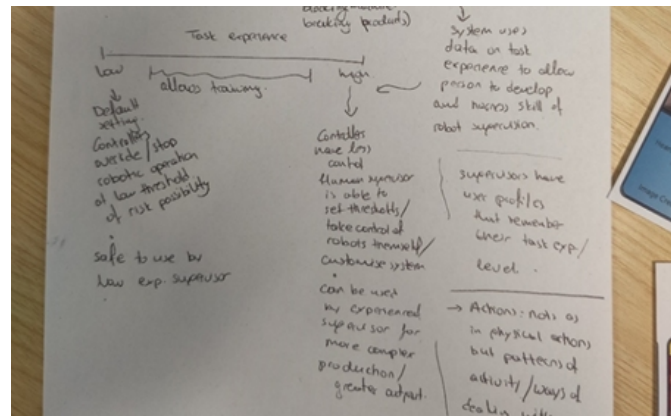 breaking products)
Task experience
low
allows training.
high
Default
setting.
Controllers
override/stop
robotic operation
at low threshold
of risk possibility
safe to use by
low exp. supervisor
Controllers
have less
control
Human supervisor
is able to
set thresholds/
take control of
robots themself/
customise system
can be used
by experienced
supervisor for
more complex
production/
greater output.
system uses
data on task
experience to allow
person to develop
and harness skill of
robot supervision.
supervisors have
user profiles
that remember
their task exp/
level.
→ Actions: not as
in physical actions
but patterns of
activity/ways of
dealing with